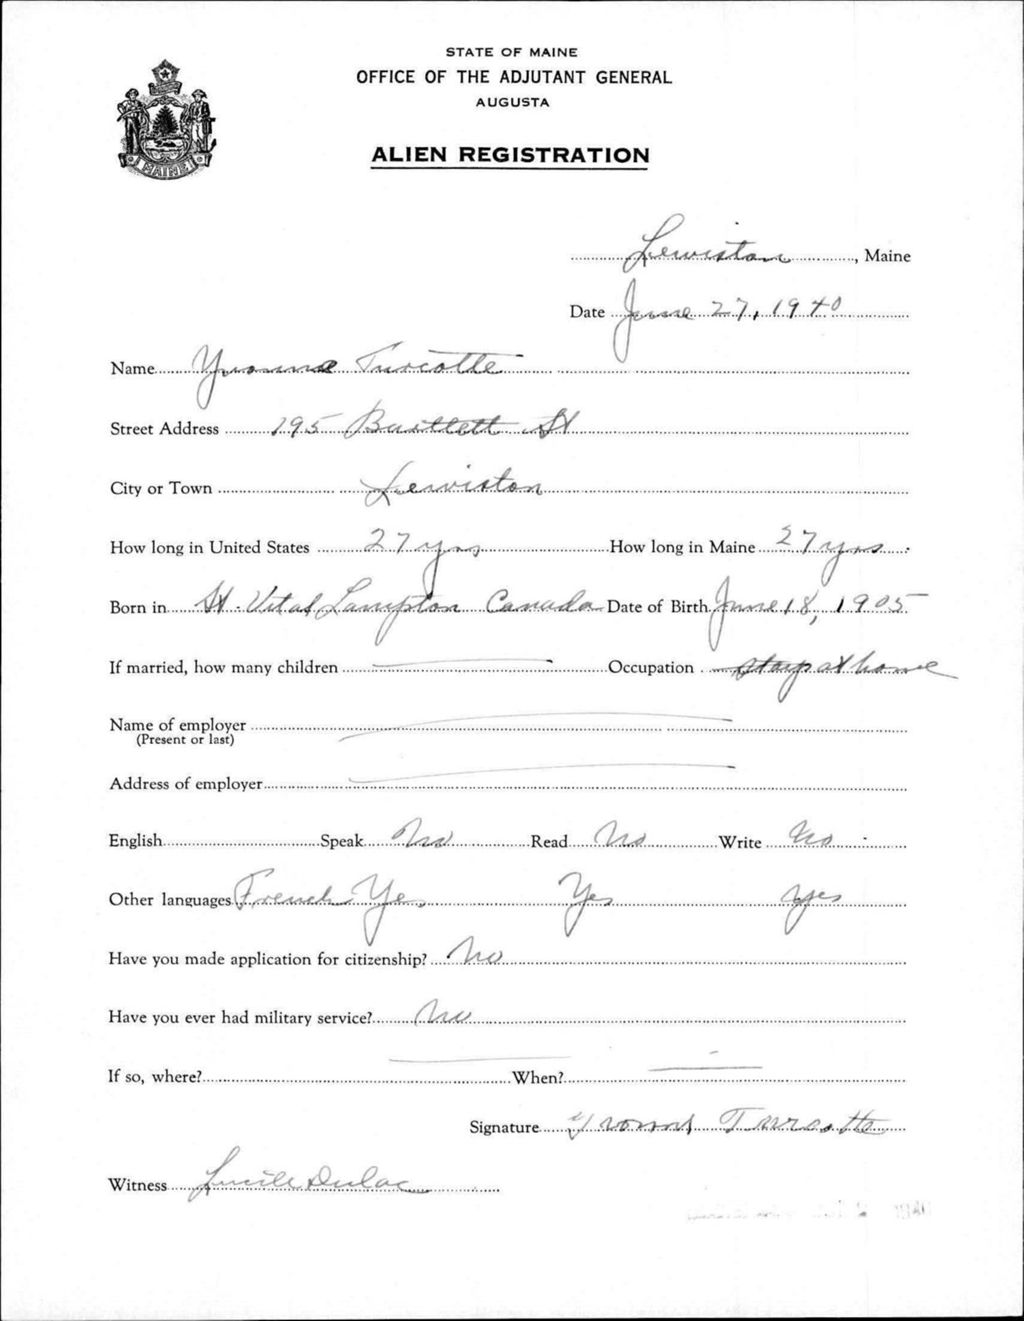 STATE OF MAINE
OFFICE OF THE ADJUTANT GENERAL
AUGUSTA
ALIEN REGISTRATION
MAINE
Lewiston, Maine
Date June 27, 1940
Name Yvonne Turcotte
Street Address 195 Bartlett St
City or Town Lewiston
How long in United States 27 yrs How long in Maine 27 yrs
Born in St. Vital Lampton Canada Date of Birth June 18, 1905
If married, how many children — Occupation Stay at home
Name of employer —
(Present or last)
Address of employer —
English Speak No Read No Write No
Other languages French Yes Yes yes
Have you made application for citizenship? No
Have you ever had military service? No
If so, where? — When? —
Signature Yvonne Turcotte
Witness Lucile Dulac